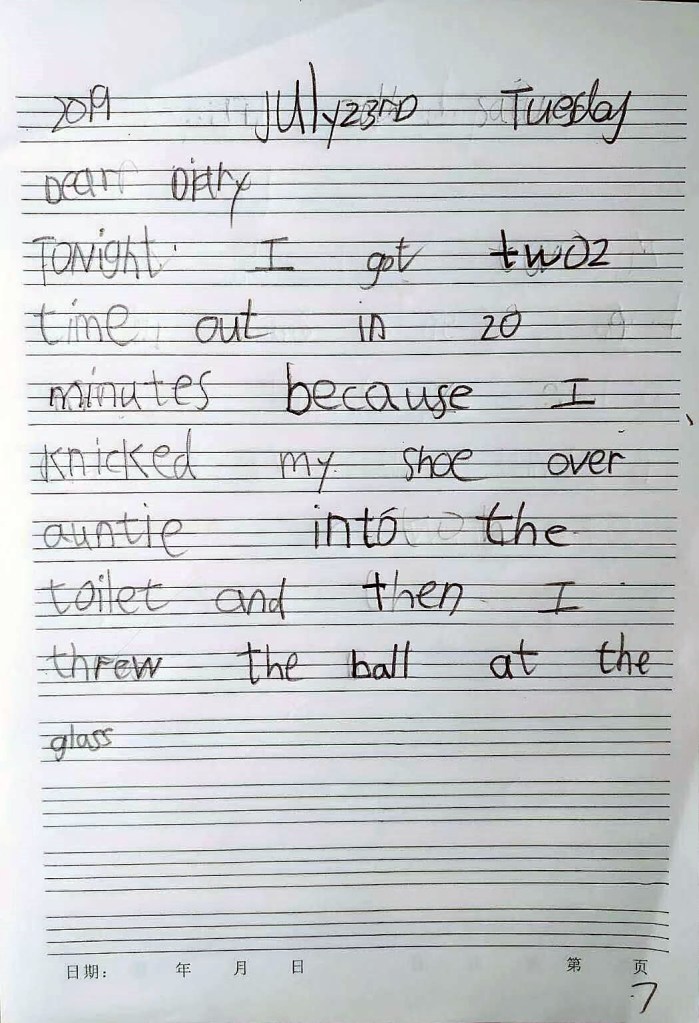 2019 July 23RD Tuesday
Dear Diary
Tonight I got two2
time out in 20
minutes because I
knicked my shoe over
auntie into the
toilet and then I
threw the ball at the
glass
日期: 年 月 日 第 页
7